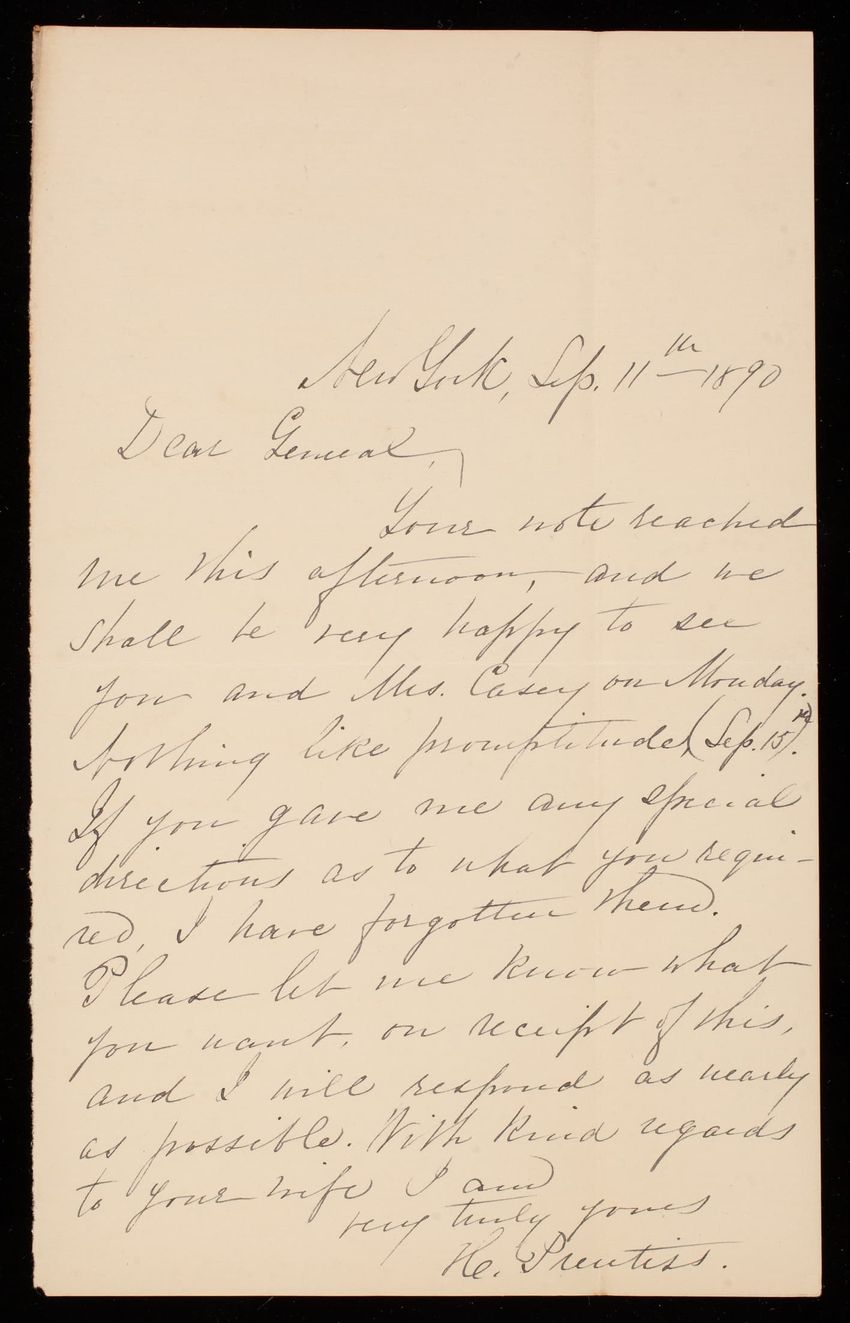 New York, Sep. 11th 1890
Dear General,
Your note reached
me this afternoon, and we
shall be very happy to see
you and Mrs. Casey on Monday.
Nothing like promptitude! (Sep. 15th).
If you gave me any special
directions as to what you requi-
red, I have forgotten them.
Please let me know what
you want, on receipt of this,
and I will respond as nearly
as possible. With kind regards
to your wife I am
very truly yours
H. Prentiss.